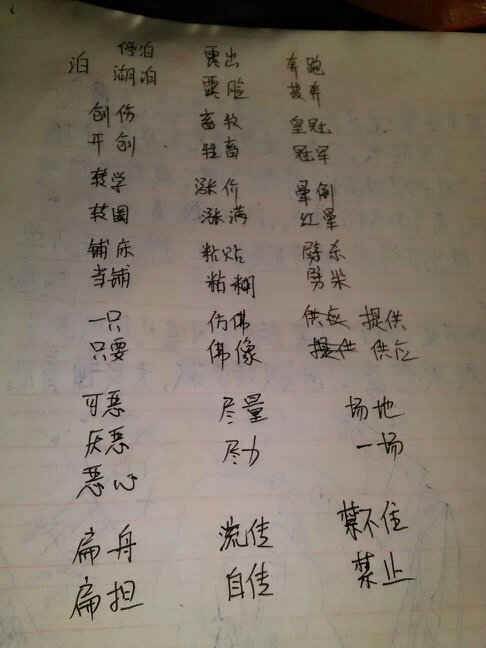 泊 停泊 露出 奔跑
湖泊 露脸 投奔
创伤 畜牧 皇冠
开创 牲畜 冠军
转学 涨价 晕倒
转圈 涨满 红晕
铺床 粘贴 劈杀
当铺 粘糊 劈柴
一只 仿佛 供应 提供
只要 佛像 提供 供应
可恶 尽量 场地
厌恶 尽力 一场
恶心
扁舟 流传 禁不住
扁担 自传 禁止